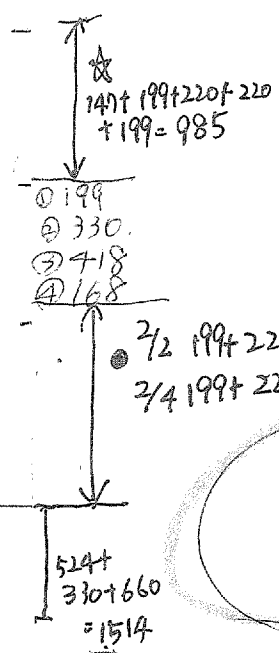 ☆
147+199+220+220
+199=985
① 199
② 330.
③ 418
④ 168
● 2/2 199+22
2/4 199+22
524+
330+660
=1514